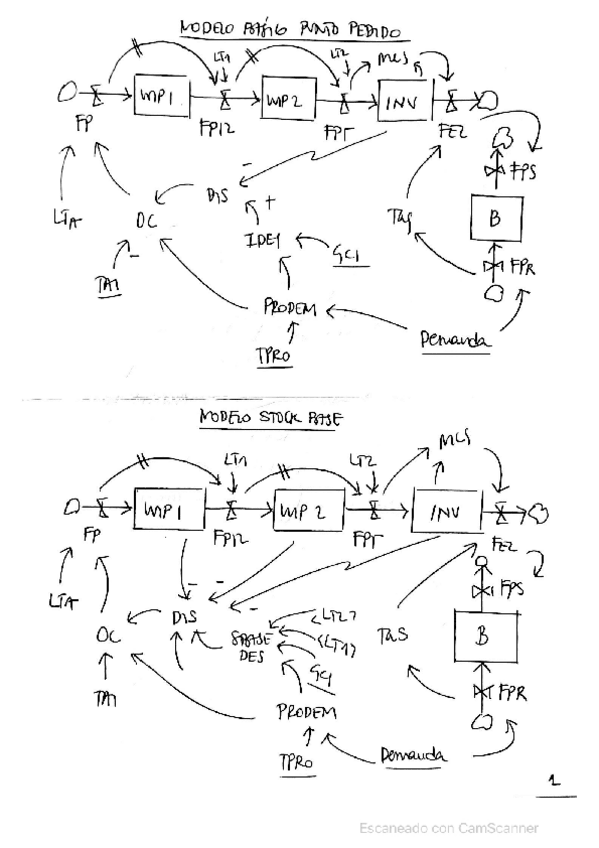 MODELO BÁSICO PUNTO PEDIDO
LT1 LT2 MCS
WIP1 WIP2 INV
FP FP12 FPT FEZ
FPS
LTA OC DIS - TAS B
+
IDE1 GC1 FPR
TAI -
PRODEM
Demanda
TPRO
MODELO STOCK BASE
MCS
LT1 LT2
WIP1 WIP 2 INV
FP FP12 FPT FEZ
FPS
LTA - -
DIS - <LT2>
OC SBASE DES <LT1> TAS B
GC1
TAI FPR
PRODEM
TPRO Demanda
1
Escaneado con CamScanner